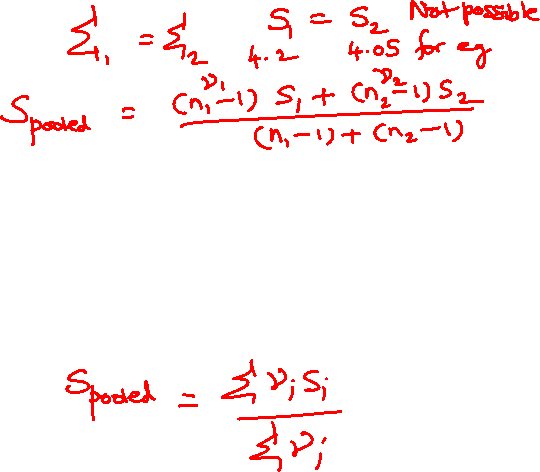 Σ₁ = Σ₂ S₁ = S₂ Not possible
4.2 4.05 for eg
ν₁ ν₂
S pooled = (n₁-1) S₁ + (n₂-1) S₂
(n₁-1) + (n₂-1)
S pooled = Σ νᵢ Sᵢ
Σ νᵢ